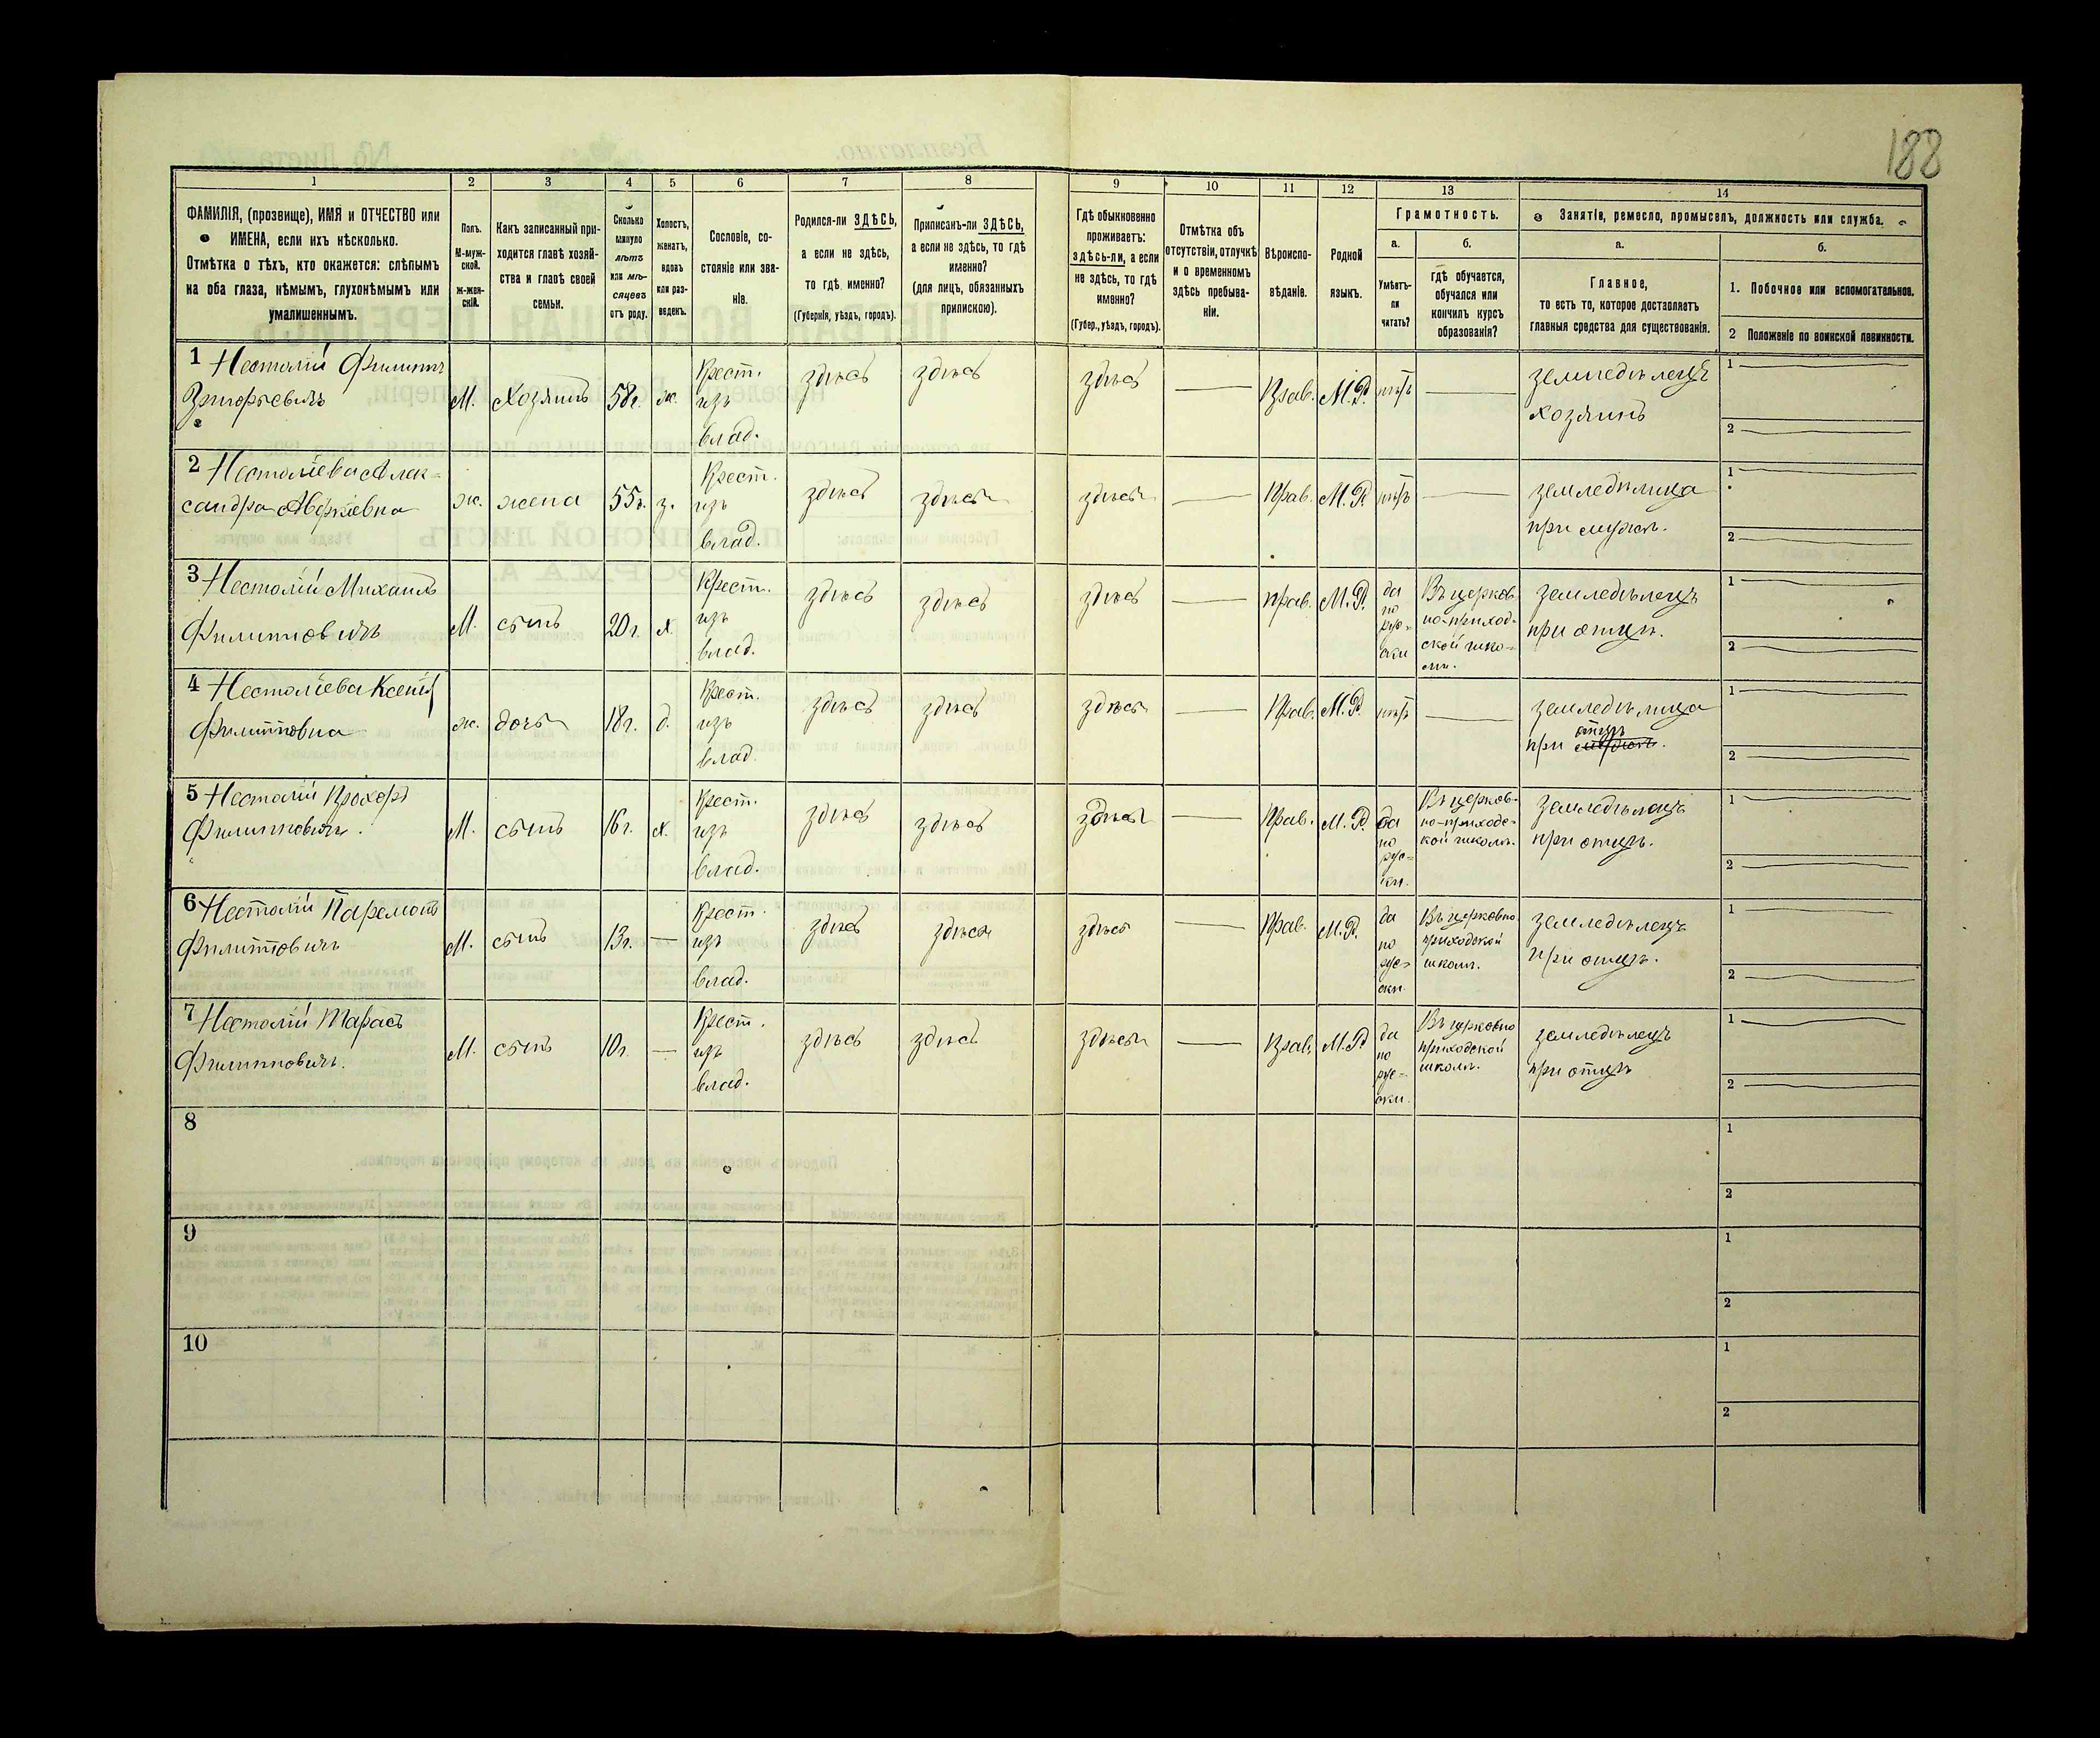 188
1
2
3
4
5
6
7
8
9
10
11
12
13
14
ФАМИЛІЯ, (прозвище), ИМЯ и ОТЧЕСТВО или
ИМЕНА, если ихъ нѣсколько.
Отмѣтка о тѣхъ, кто окажется: слѣпымъ
на оба глаза, нѣмымъ, глухонѣмымъ или
умалишеннымъ.
Полъ.
М-муж-
ской.
Ж-жен-
скій.
Какъ записанный при-
ходится главѣ хозяй-
ства и главѣ своей
семьи.
Сколько
минуло
лѣтъ
или мѣ-
сяцевъ
отъ роду.
Холостъ,
женатъ,
вдовъ
или раз-
веденъ.
Сословіе, со-
стояніе или зва-
ніе.
Родился-ли ЗДѢСЬ,
а если не здѣсь,
то гдѣ именно?
(Губернія, уѣздъ, городъ).
Приписанъ-ли ЗДѢСЬ,
а если не здѣсь, то гдѣ
именно?
(для лицъ, обязанныхъ
припискою).
Гдѣ обыкновенно
проживаетъ:
здѣсь-ли, а если
не здѣсь, то гдѣ
именно?
(Губер., уѣздъ, городъ).
Отмѣтка объ
отсутствіи, отлучкѣ
и о временномъ
здѣсь пребыва-
ніи.
Вѣроиспо-
вѣданіе.
Родной
языкъ.
Грамотность.
а.
Умѣетъ-
ли
читать?
б.
гдѣ обучается,
обучался или
кончилъ курсъ
образованія?
Занятіе, ремесло, промыселъ, должность или служба.
а.
Главное,
то есть то, которое доставляетъ
главныя средства для существованія.
б.
1. Побочное или вспомогательное.
2 Положеніе по воинской повинности.
1 Филиппъ
М. Хозяинъ 58г. ж. Крест. изъ влад. здѣсь здѣсь здѣсь — Прав. М.Р. нѣтъ — земледѣлецъ хозяинъ 1 — 2 —
2 Алек-
сандра
ж. жена 55г. з. Крест. изъ влад. здѣсь здѣсь здѣсь — Прав. М.Р. нѣтъ — земледѣлица при мужѣ. 1 — 2 —
3 Михаилъ
Филипповичъ
М. сынъ 20г. х. Крест. изъ влад. здѣсь здѣсь здѣсь — прав. М.Р. да по рус-ски Въ церков-но-приход-ской шко-лѣ. земледѣлецъ при отцѣ. 1 — 2 —
4 Ксенія
Филипповна
ж. дочь 18г. д. Крест. изъ влад. здѣсь здѣсь здѣсь — Прав. М.Р. нѣтъ — земледѣлица при отцѣ мужѣ. 1 — 2 —
5 Прохоръ
Филипповичъ.
М. сынъ 16г. х. Крест. изъ влад. здѣсь здѣсь здѣсь — Прав. М.Р. да по рус-ки. Въ церков-но-приходс-кой школѣ. земледѣлецъ при отцѣ. 1 — 2 —
6
Филипповичъ
М. сынъ 13г. — Крест. изъ влад. здѣсь здѣсь здѣсь — Прав. М.Р. да по рус-ски. Въ церковно приходской школѣ. земледѣлецъ при отцѣ. 1 — 2 —
7 Тарасъ
Филипповичъ.
М. сынъ 10г. — Крест. изъ влад. здѣсь здѣсь здѣсь — Прав. М.Р да по рус-ски. Въ церковно приходской школѣ. земледѣлецъ при отцѣ 1 — 2 —
8
1
2
9
1
2
10
1
2